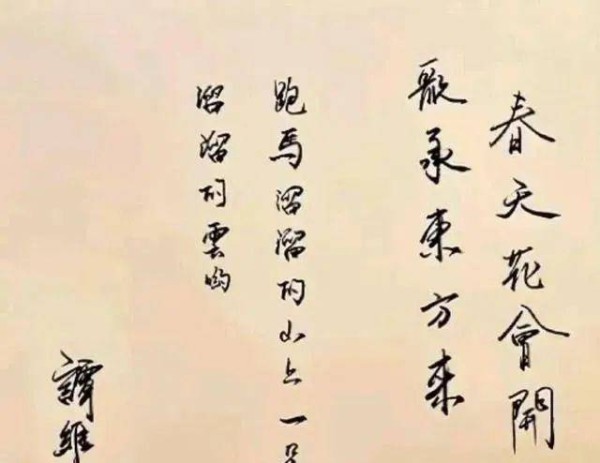 春天花會開
歌承東方来
跑馬溜溜的山上一
溜溜的雲喲
譚維